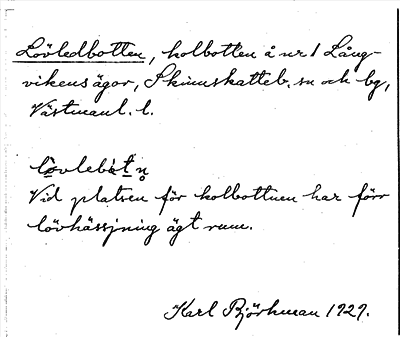 Lövledbotten, kolbotten å nr 1 Lång-
vikens ägor, Skinnskatteb. sn och bg,
Västmanl. l.
Vid platsen för kolbottnen har förr
lövhässjning ägt rum.
Karl Björkman 1929.